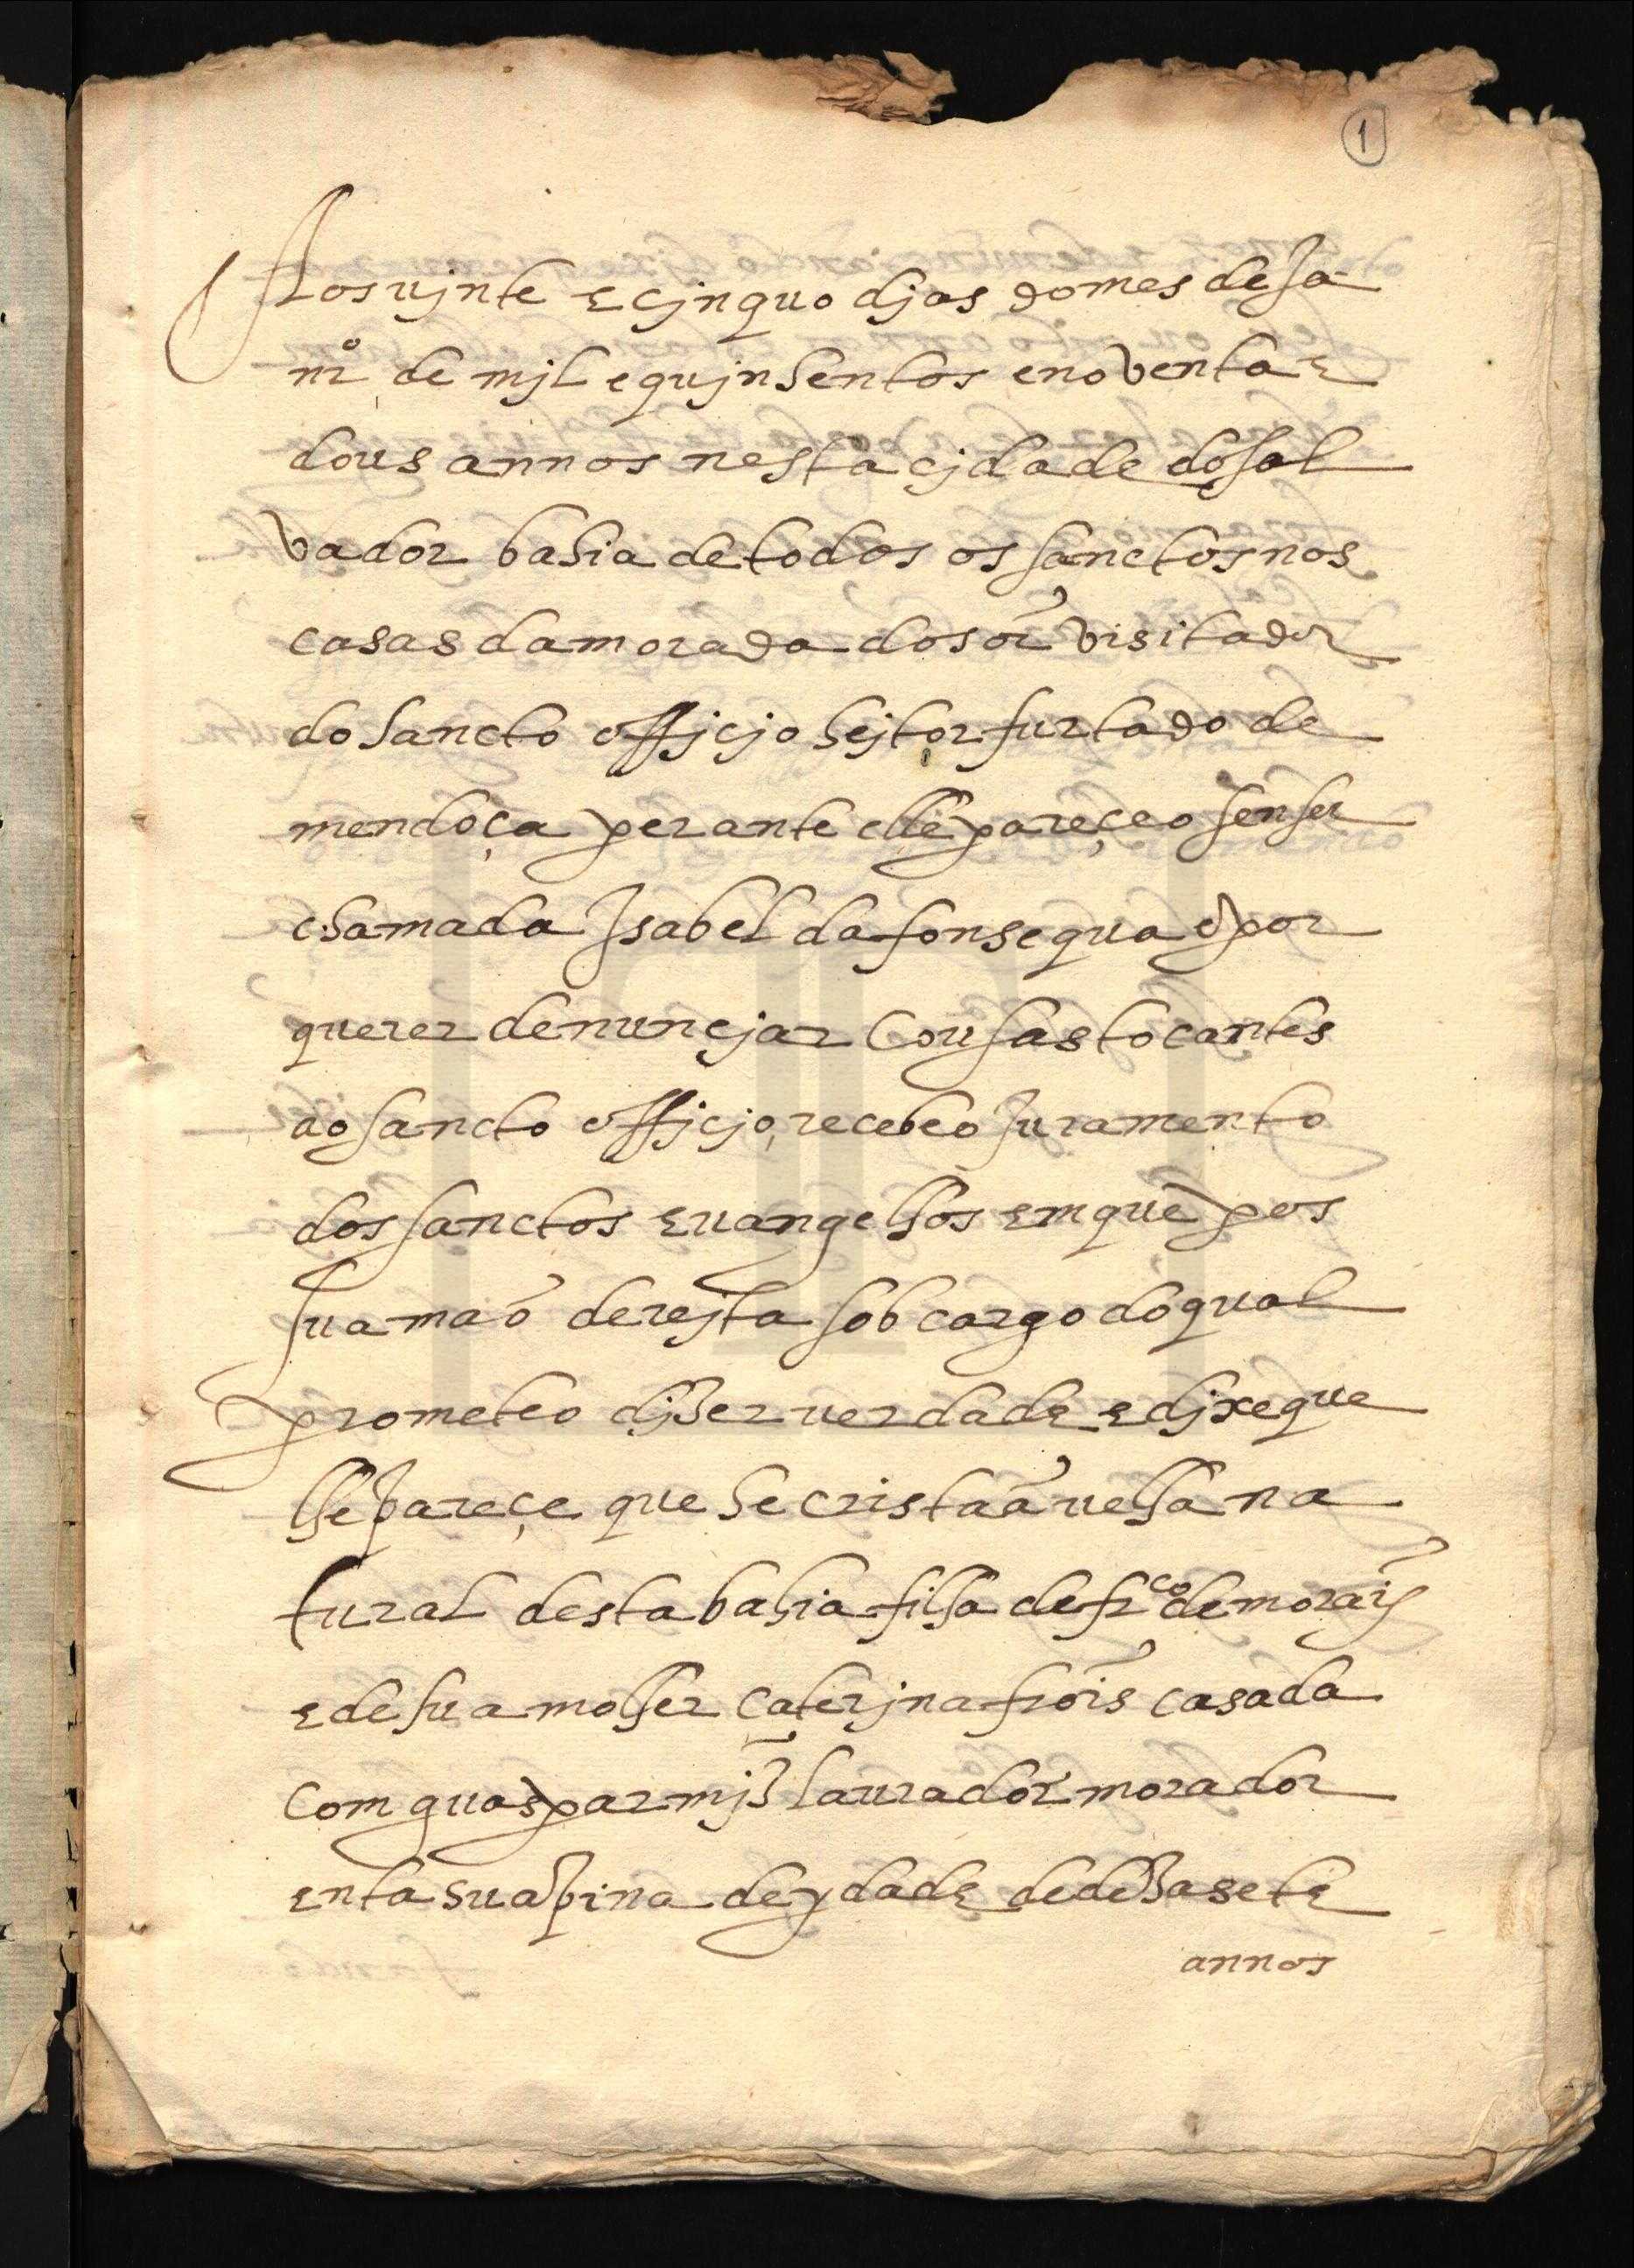 1
Aos vjnte e cjnquo djas do mes de Ja
nrº de mjl e qujnhentos e noventa e
dous annos nesta cjdade do sal
vador bahia de todos os sanctos nas
casas da morada do sõr visitador
do sancto offjcjo hejtor furtado de
mendoça perante elle pareçeo sem ser
chamada Isabel da fonsequa e por
querer denuncjar cousas tocantes
ao sancto offjcjo, recebeo Juramento
dos sanctos evangelhos em que pos
sua maõ derejta sob cargo do qual
prometeo djzer verdade e djxe que
lhe pareçe que he cristaã velha na
tural desta bahia filha de frco de morais
e de sua molher Caterjna frois casada
com guaspar mjz lavrador morador
em tasuapina de ydade de dezasete
annos